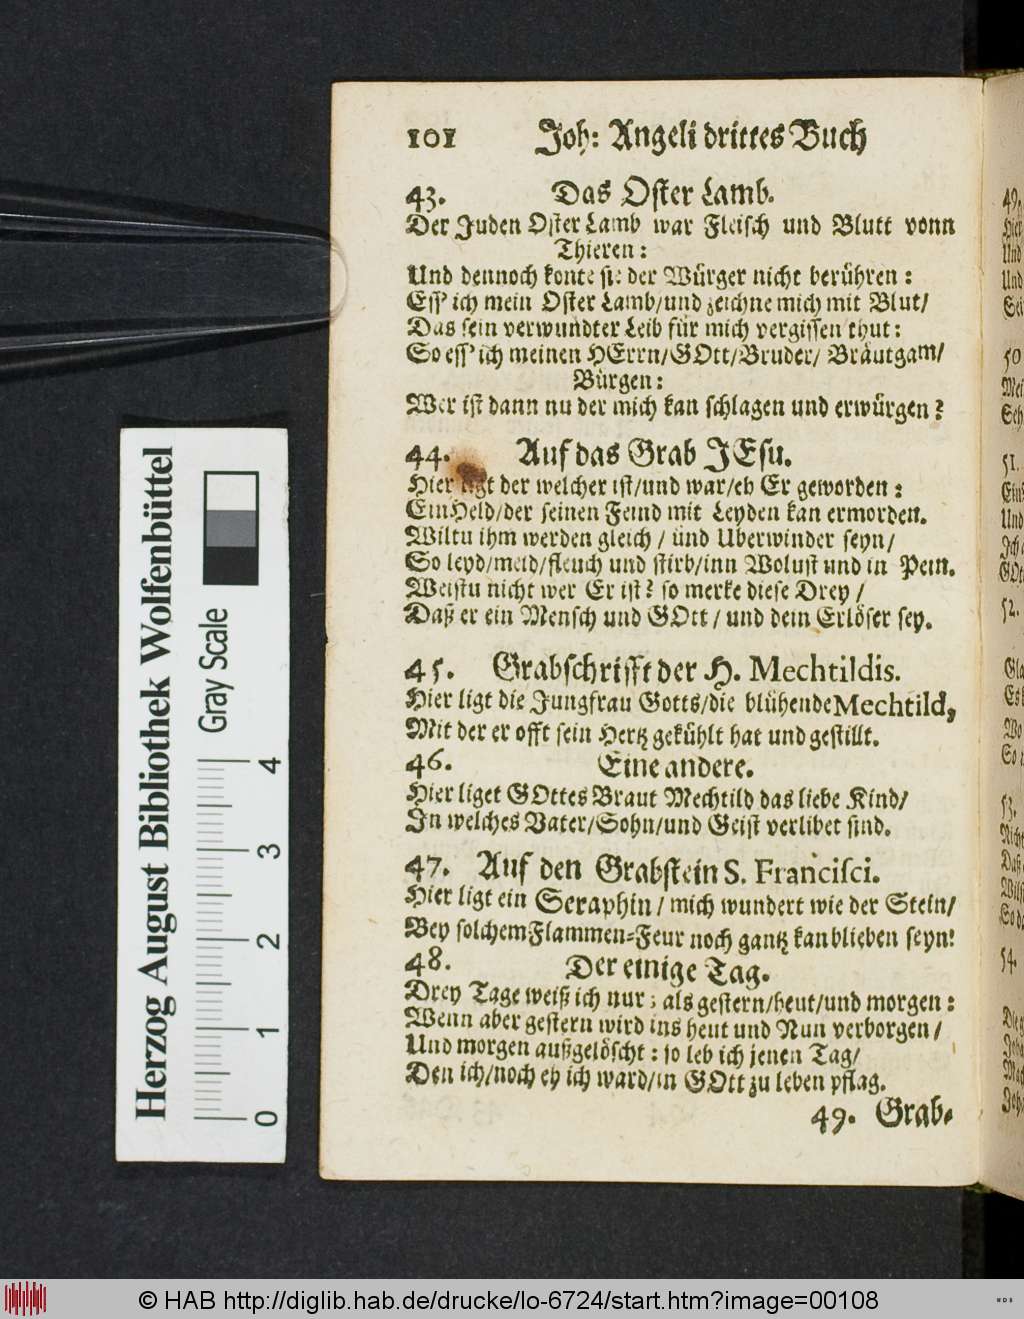 101 Joh: Angeli drittes Buch
43. Das Oster Lamb.
Der Juden Oster Lamb war Fleisch und Blutt vonn
Thieren:
Und dennoch konte sie der Würger nicht berühren:
Ess' ich mein Oster Lamb/und zeichne mich mit Blut/
Das sein verwundter Leib für mich vergissen thut:
So ess' ich meinen HErrn/GOtt/Bruder/ Bräutgam/
Bürgen:
Wer ist dann nu der mich kan schlagen und erwürgen?
44. Auf das Grab JEsu.
Hier ligt der welcher ist/und war/eh Er geworden:
Ein Held/der seinen Feind mit Leyden kan ermorden.
Wiltu ihm werden gleich/ und Uberwinder seyn/
So leyd/meid/fleuch und stirb/inn Wolust und in Pein.
Weistu nicht wer Er ist? so merke diese Drey/
Daß er ein Mensch und GOtt/ und dein Erlöser sey.
45. Grabschrifft der H. Mechtildis.
Hier ligt die Jungfrau Gotts/die blühende Mechtild,
Mit der er offt sein Hertz gekühlt hat und gestillt.
46. Eine andere.
Hier liget GOttes Braut Mechtild das liebe Kind/
In welches Vater/Sohn/und Geist verlibet sind.
47. Auf den Grabstein S. Francisci.
Hier ligt ein Seraphin/ mich wundert wie der Stein/
Bey solchem Flammen-Feur noch gantz kan blieben seyn!
48. Der einige Tag.
Drey Tage weiß ich nur; als gestern/heut/und morgen:
Wenn aber gestern wird ins heut und Nun verborgen/
Und morgen außgelöscht: so leb ich jenen Tag/
Den ich/noch eh ich ward/in GOtt zu leben pflag.
49. Grab-
49.
50
51.
52.
53.
54.
Herzog August Bibliothek Wolfenbüttel
Gray Scale
0 1 2 3 4
© HAB http://diglib.hab.de/drucke/lo-6724/start.htm?image=00108